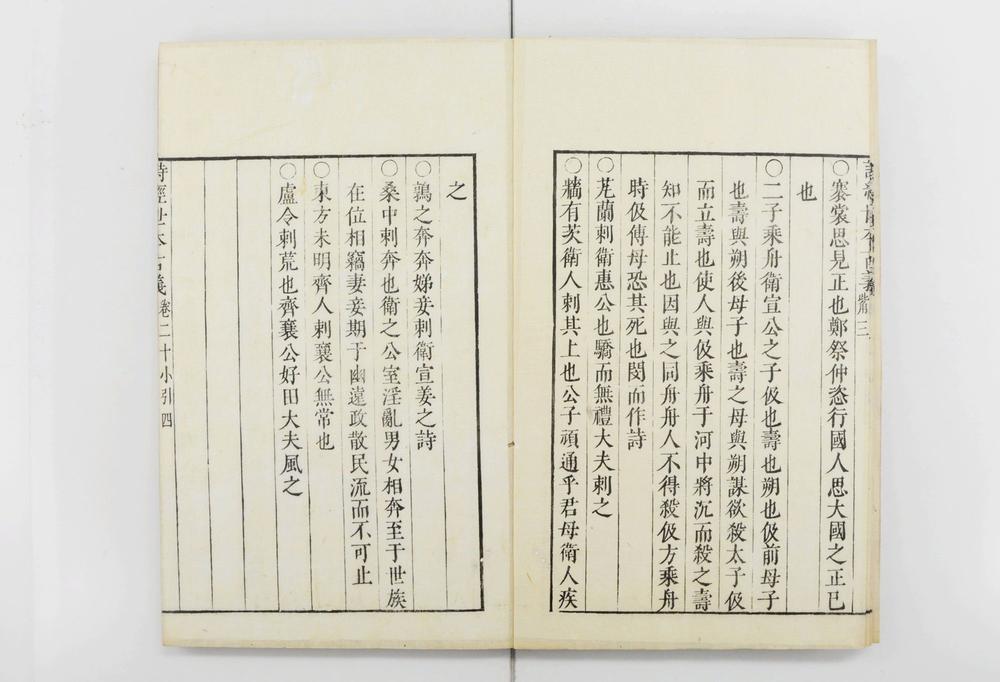 ○褰裳思見正也鄭祭仲恣行國人思大國之正已
也
○二子乘舟衛宣公之子伋也壽也朔也伋前母子
也壽與朔後母子也壽之母與朔謀欲殺太子伋
而立壽也使人與伋乘舟于河中將沉而殺之壽
知不能止也因與之同舟舟人不得殺伋方乘舟
時伋傅母恐其死也閔而作詩
○芄蘭刺衛惠公也驕而無禮大夫刺之
○牆有茨衛人刺其上也公子頑通乎君母衛人疾
之
○鶉之奔奔娣妾刺衛宣姜之詩
○桑中刺奔也衛之公室淫亂男女相奔至于世族
在位相竊妻妾期于幽遠政散民流而不可止
○東方未明齊人刺襄公無常也
○盧令刺荒也齊襄公好田大夫風之
詩經世本古義 卷二十小引 四